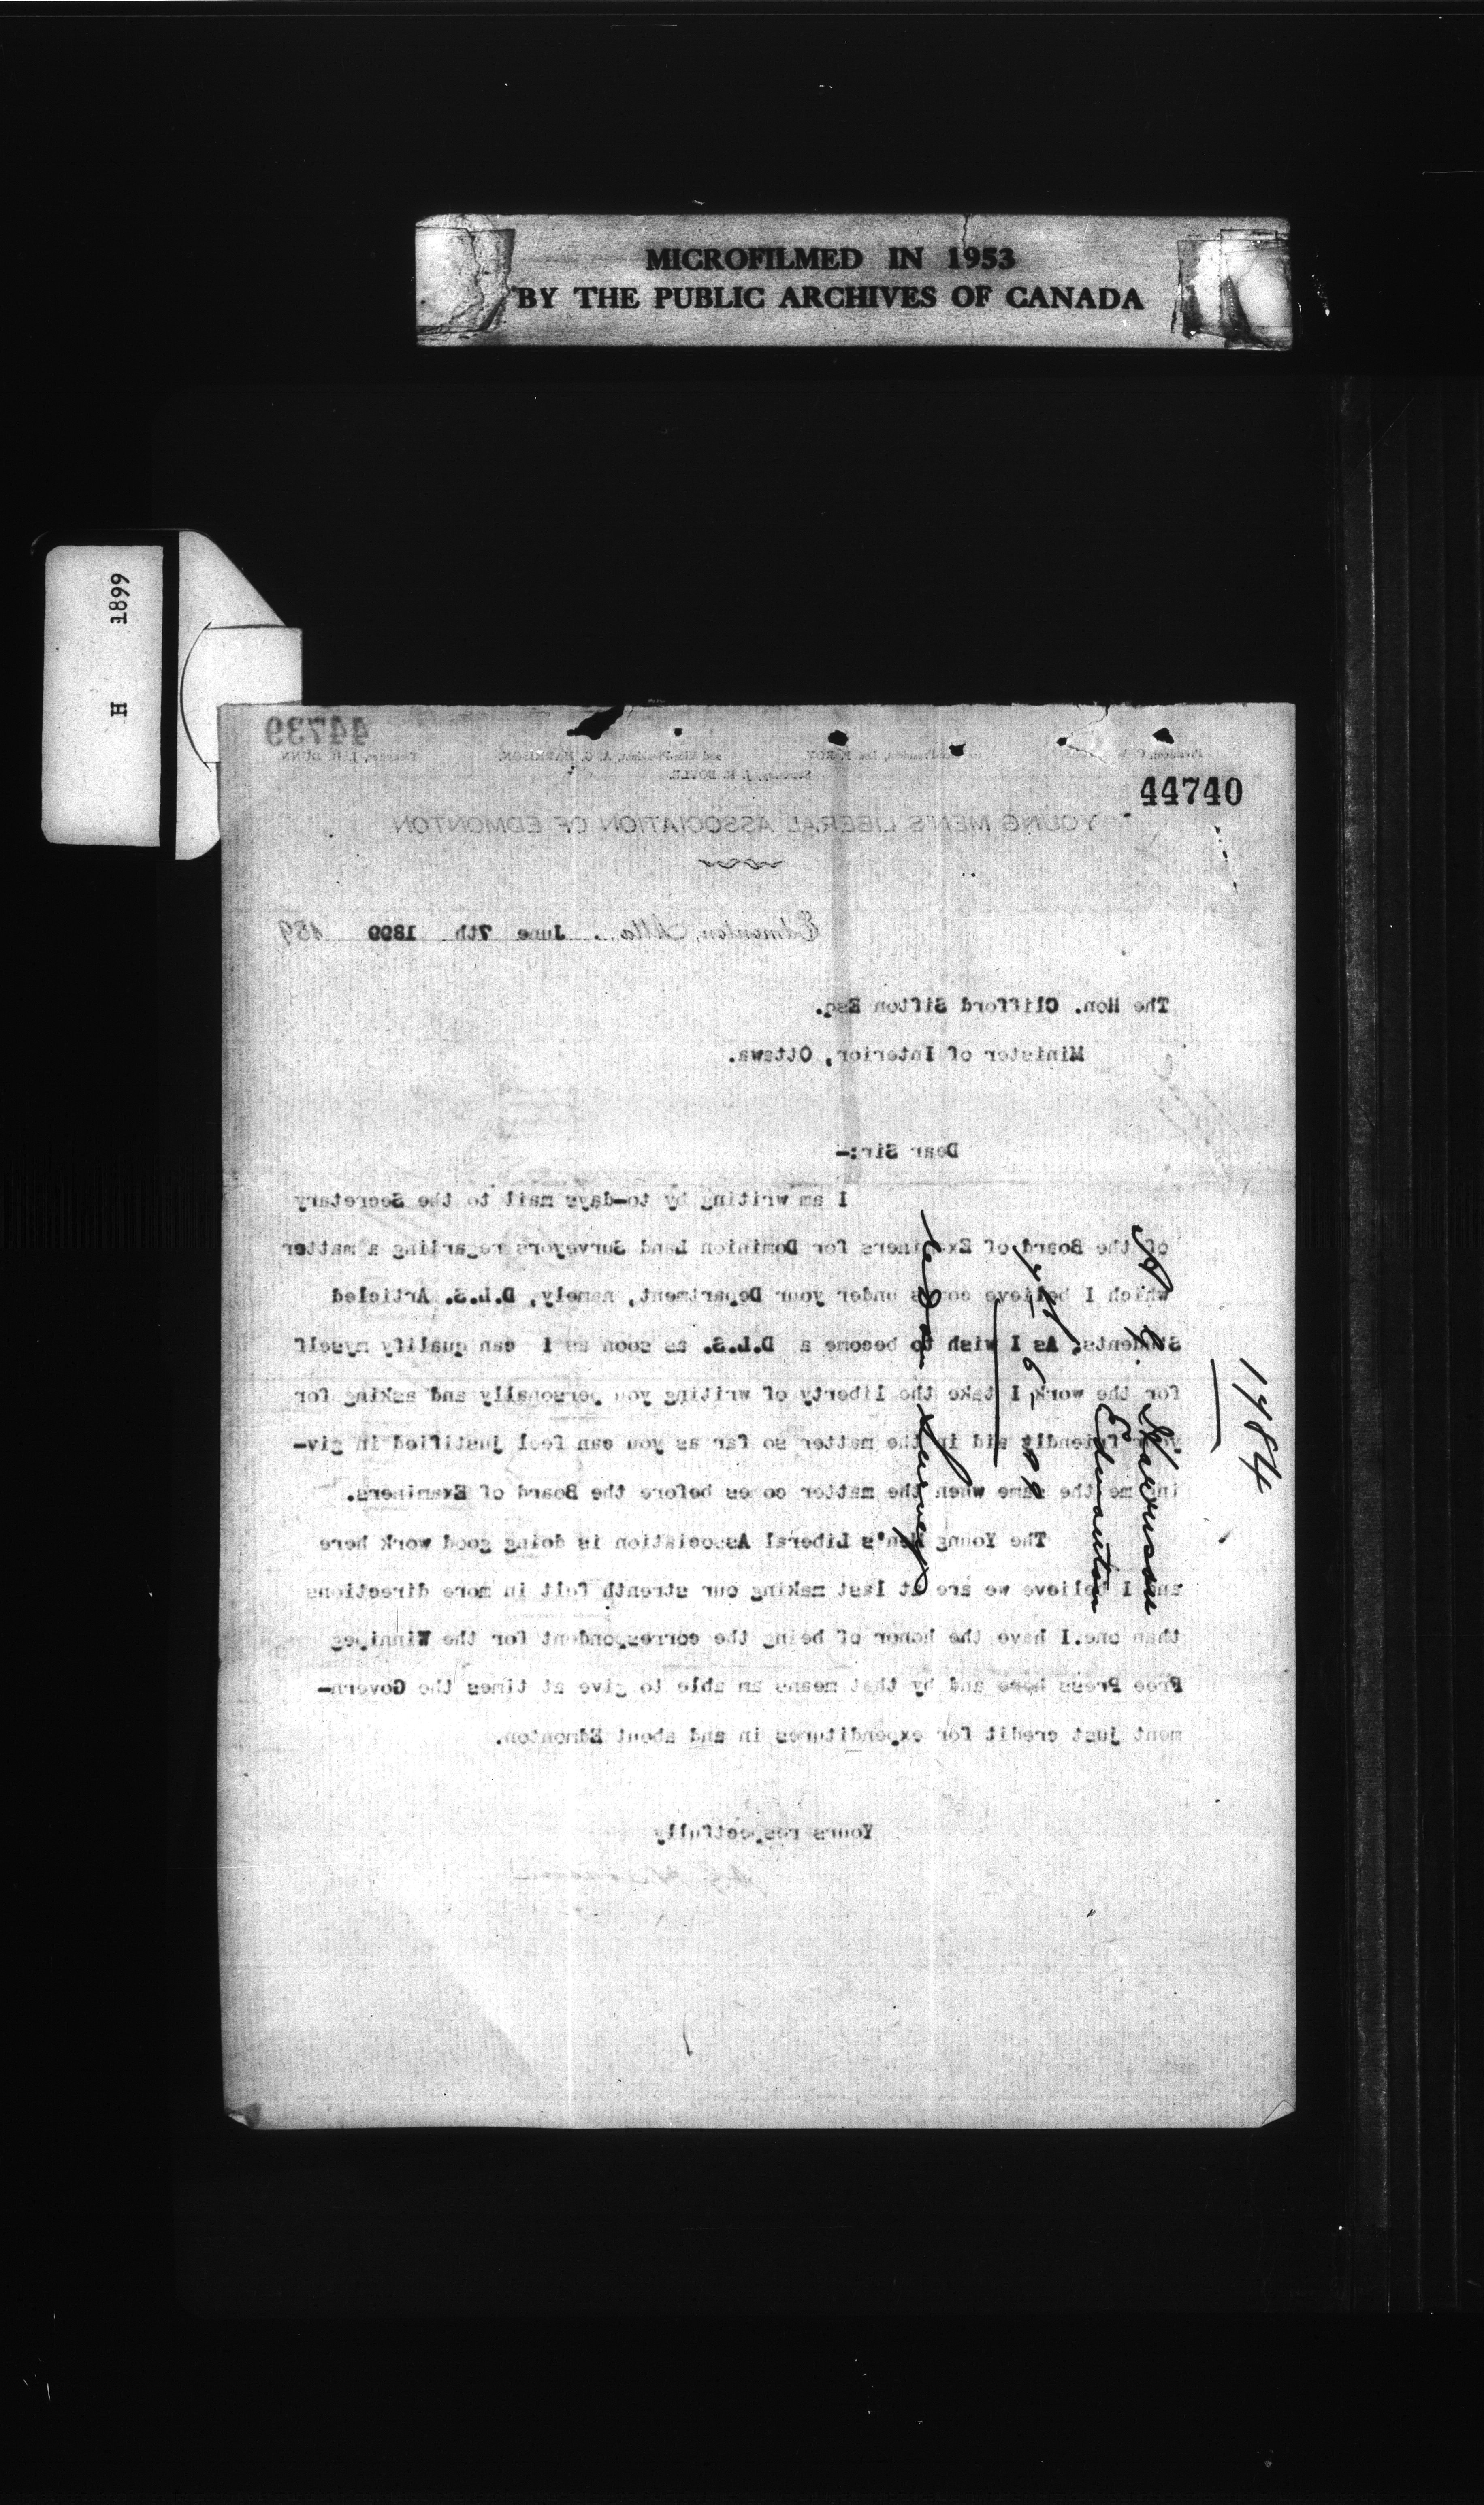 MICROFILMED IN 1953
BY THE PUBLIC ARCHIVES OF CANADA
H 1899
44739
44740
YOUNG MEN'S LIBERAL ASSOCIATION OF EDMONTON
Edmonton, Alta., June 7th 1899 189
The Hon. Clifford Sifton Esq.
Minister of Interior, Ottawa.
Dear Sir:-
I am writing by to-days mail to the Secretary
of the Board of Examiners for Dominion Land Surveyors regarding a matter
which I believe comes under your Department, namely, D.L.S. Articled
Students. As I wish to become a D.L.S. as soon as I can qualify myself
for the work I take the liberty of writing you personally and asking for
your friendly aid in the matter so far as you can feel justified in giv-
ing me the same when the matter comes before the Board of Examiners.
The Young Men's Liberal Association is doing good work here
and I believe we are at last making our strenth felt in more directions
than one. I have the honor of being the correspondent for the Winnipeg
Free Press here and by that means am able to give at times the Govern-
ment just credit for expenditures in and about Edmonton.
Yours respectfully
1484
Edmonton